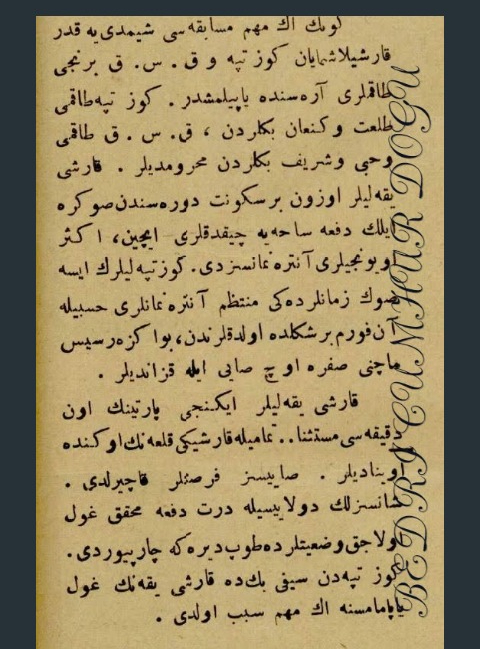 كونك اك مهم مسابقه‌سی شیمدی‌یه قدر
قارشیلاشمایان كوز تپه و ق . س . ق برنجی
طاقملری آره‌سنده یاپیلمشدر . كوز تپه‌طاقمی
طلعت وكنعان بكلردن ، ق. س . ق طاقمی
وحبی وشریف بكلردن محرومدیلر . قارشی
یقه‌لیلر اوزون برسكونت دوره‌سندن‌صوكره
ایلك دفعه ساحه‌یه چیقدقلری ایچین، اكثر
اویونجیلری آنتره‌نمانسزدی. كوزتپه‌لیلرك ایسه
صوك زمانلرده‌كی منتظم آنتره‌نمانلری حسبیله
آن‌فورم برشكلده اولدقلرندن، بوا كزه‌رسیس
ماچنی صفره اوچ صایی ایله قزاندیلر .
قارشی یقه‌لیلر ایكنجی پارتینك اون
دقیقه‌سی‌مستثنا.. تمامیله‌قارشیكی‌قلعه‌نك‌اوكنده
اوینادیلر . صاییسز فرصتلر قاچیرلدی .
شانسزلك دولاییسیله درت دفعه محقق غول
اولاجق‌وضعیتلرده‌طوپ‌دیره‌كه چارپیوردی.
كوز تپه‌دن سیفی بك‌ده قارشی یقه‌نك غول
یاپامامسنه اك مهم سبب اولدی .
BEDRI CUMHUR DOGU